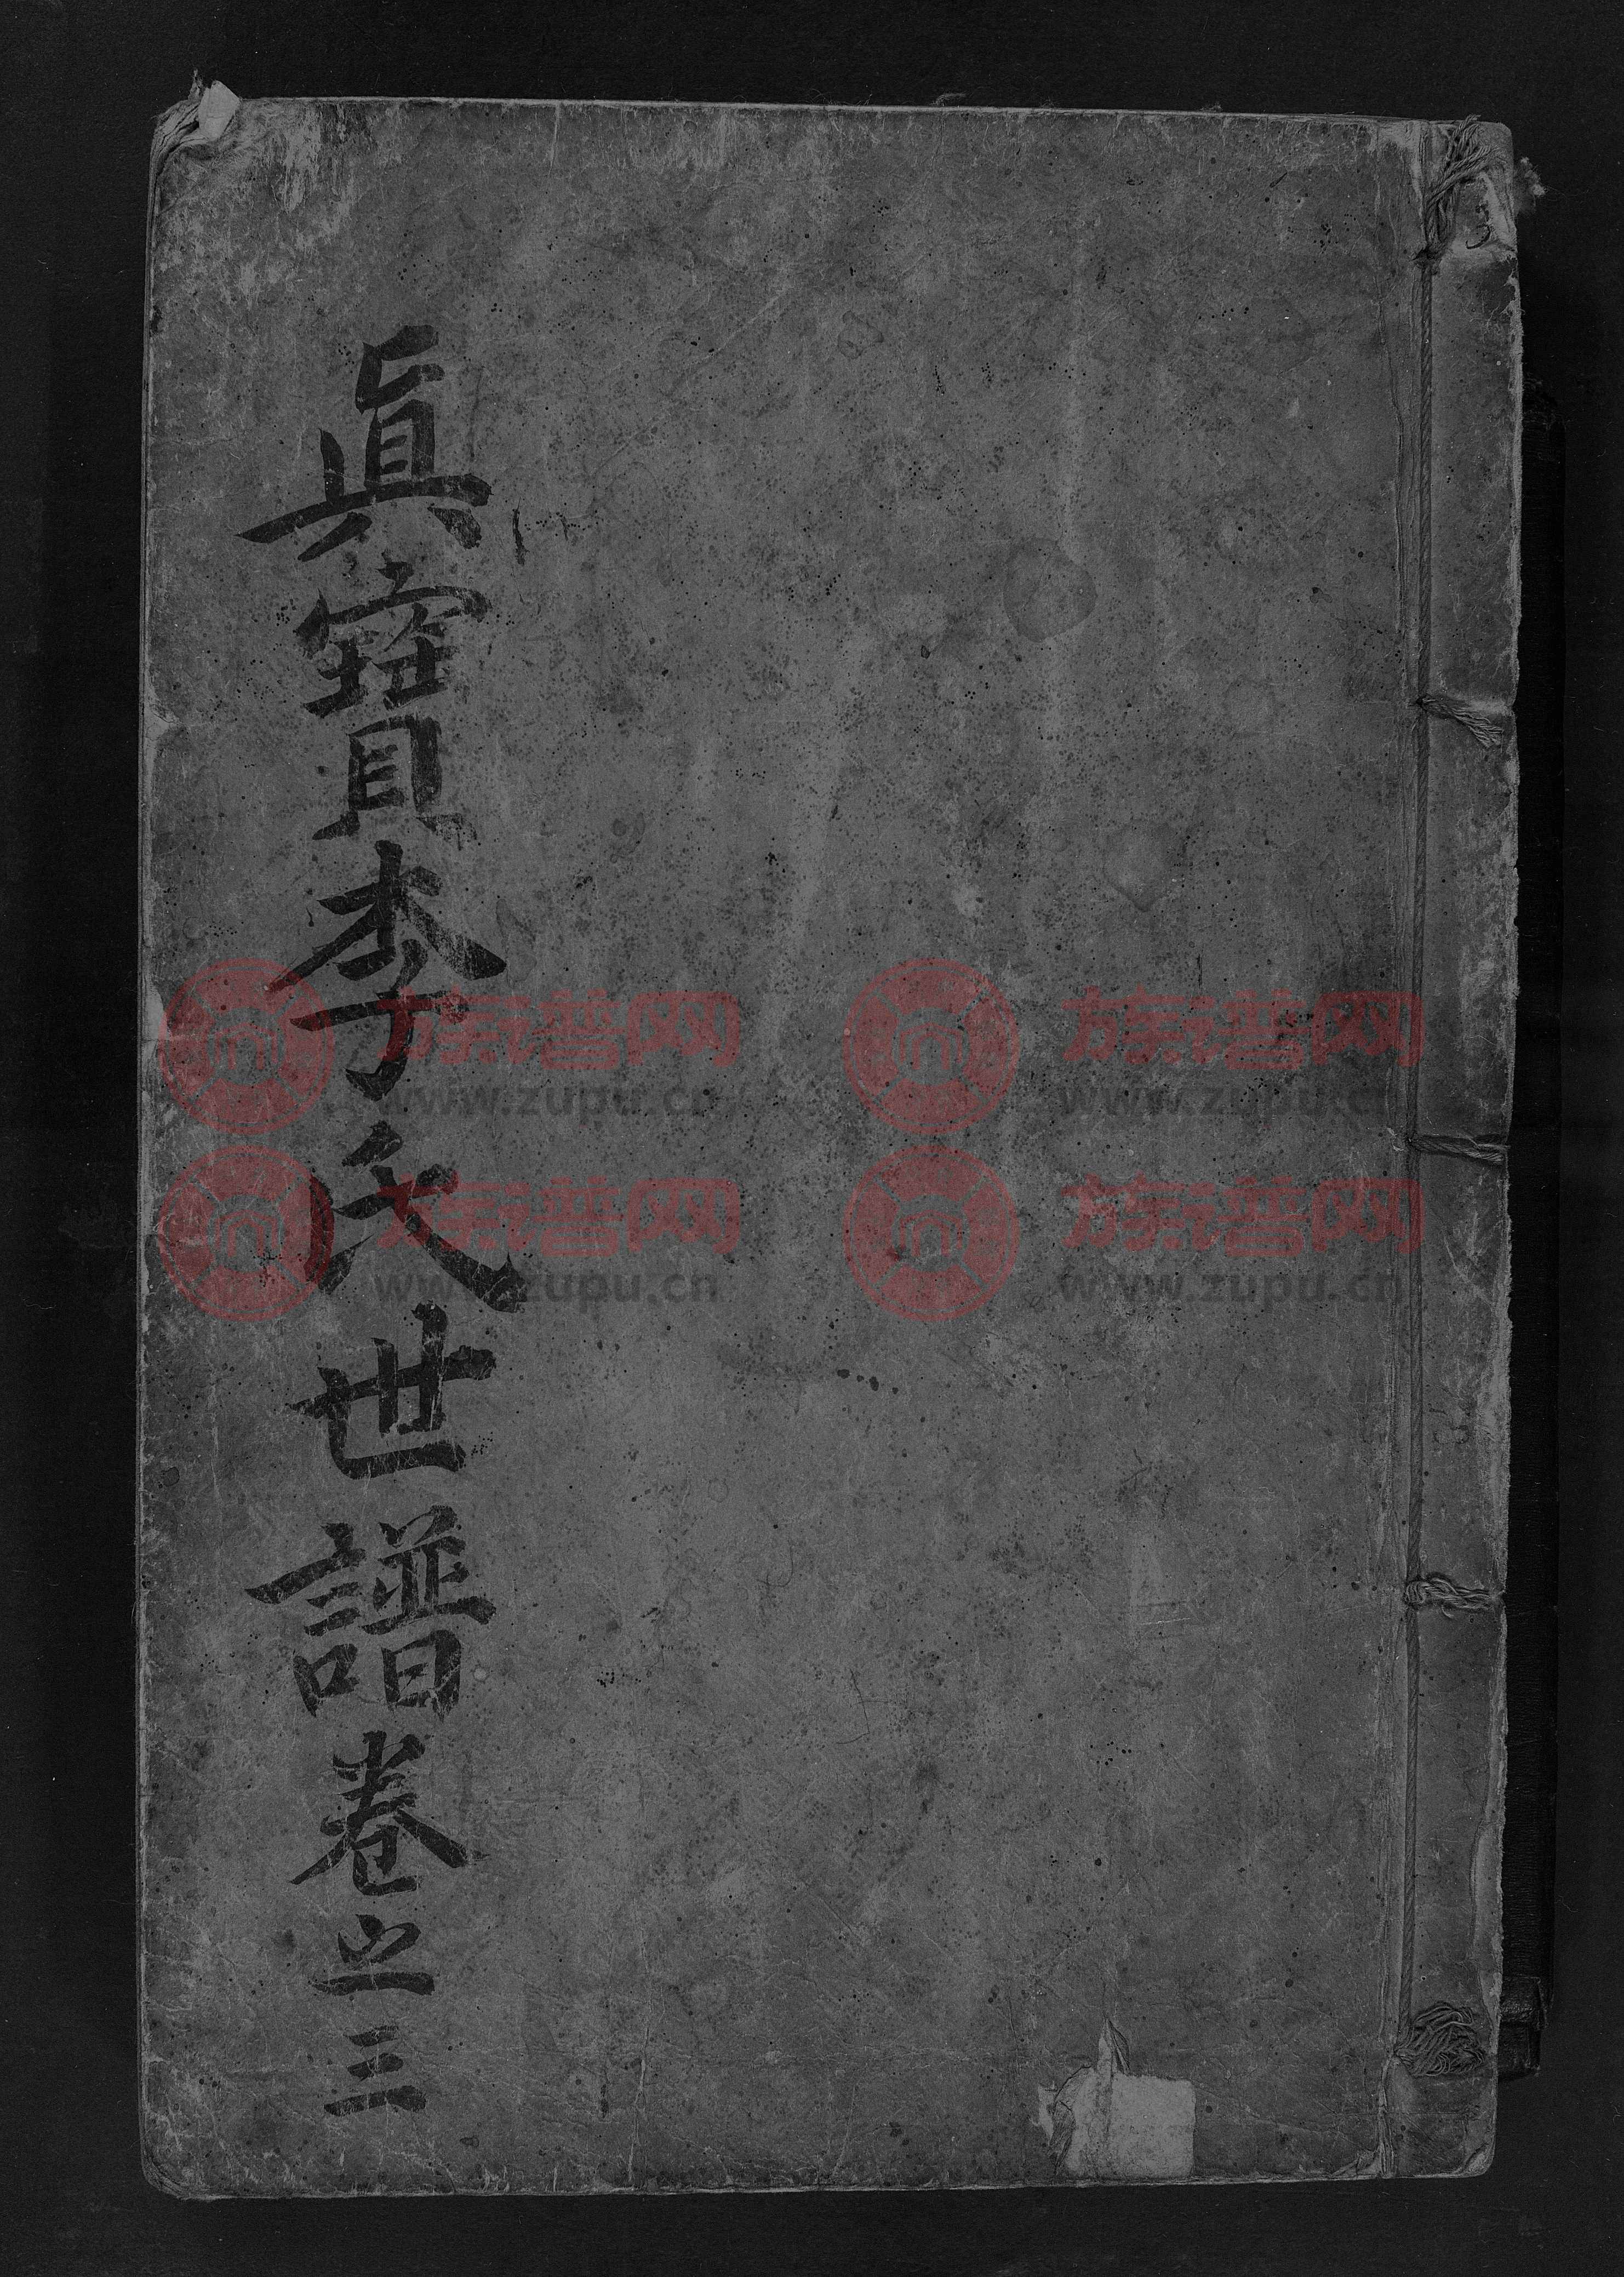 眞寶李氏世譜卷之三
3
族谱网 族谱网
www.zupu.cn www.zupu.cn
族谱网 族谱网
www.zupu.cn www.zupu.cn